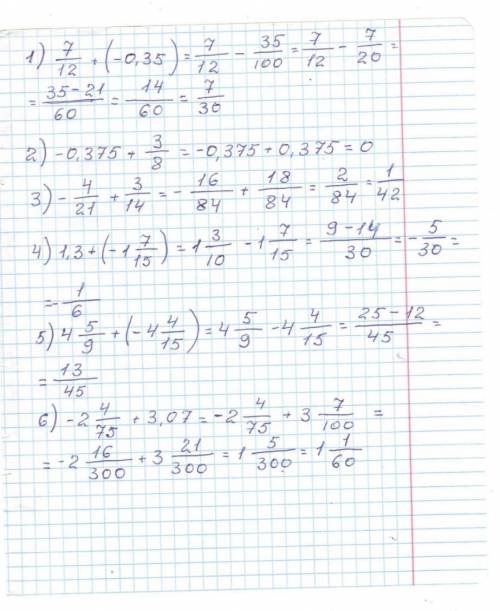 1) 7/12 + (-0,35) = 7/12 - 35/100 = 7/12 - 7/20 =
= 35-21/60 = 14/60 = 7/30
2) -0,375 + 3/8 = -0,375 + 0,375 = 0
3) - 4/21 + 3/14 = - 16/84 + 18/84 = 2/84 = 1/42
4) 1,3 + (-1 7/15) = 1 3/10 - 1 7/15 = 9-14/30 = - 5/30 =
= - 1/6
5) 4 5/9 + (-4 4/15) = 4 5/9 - 4 4/15 = 25-12/45 =
= 13/45
6) -2 4/75 + 3,07 = -2 4/75 + 3 7/100 =
= -2 16/300 + 3 21/300 = 1 5/300 = 1 1/60